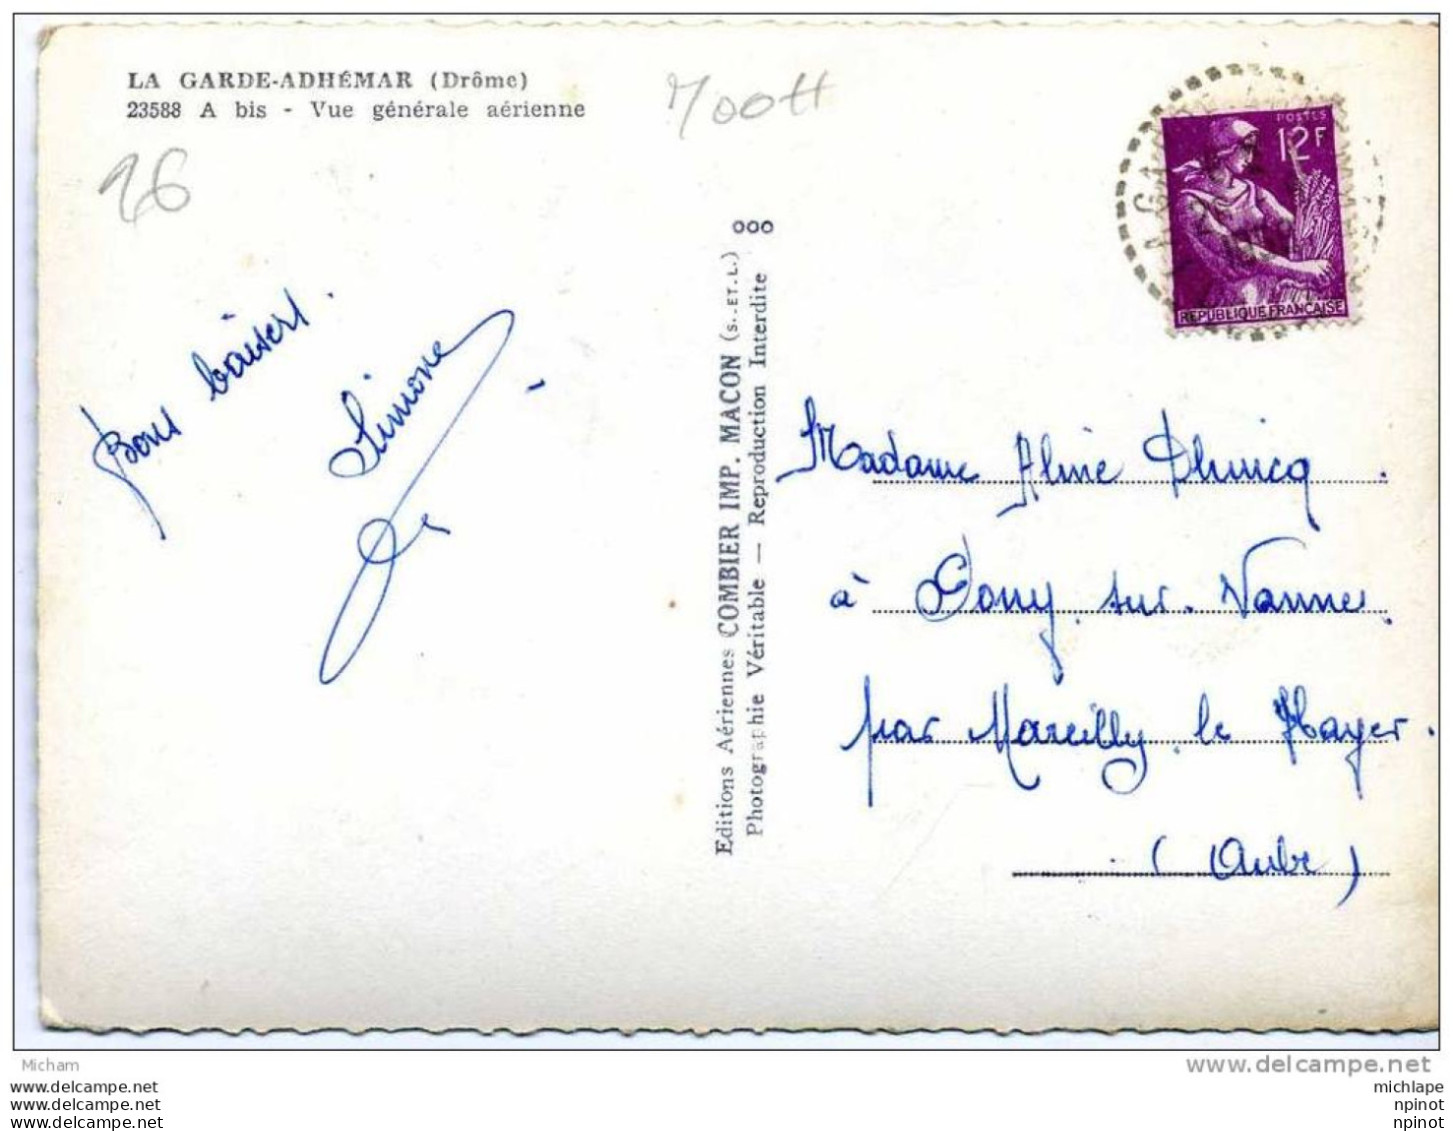 LA GARDE-ADHÉMAR (Drôme)
23588 A bis - Vue générale aérienne
26
Bons baisers.
Simone
ooo
Editions Aériennes COMBIER IMP. MACON (S.-ET-L.)
Photographie Véritable — Reproduction Interdite
POSTES
12F
REPUBLIQUE FRANÇAISE
Madame Aline
à Pouy. sur. Vannes.
par Marcilly. le Hayer.
(Aube)
Micham
www.delcampe.net
www.delcampe.net
www.delcampe.net
www.delcampe.net
michlape
npinot
npinot